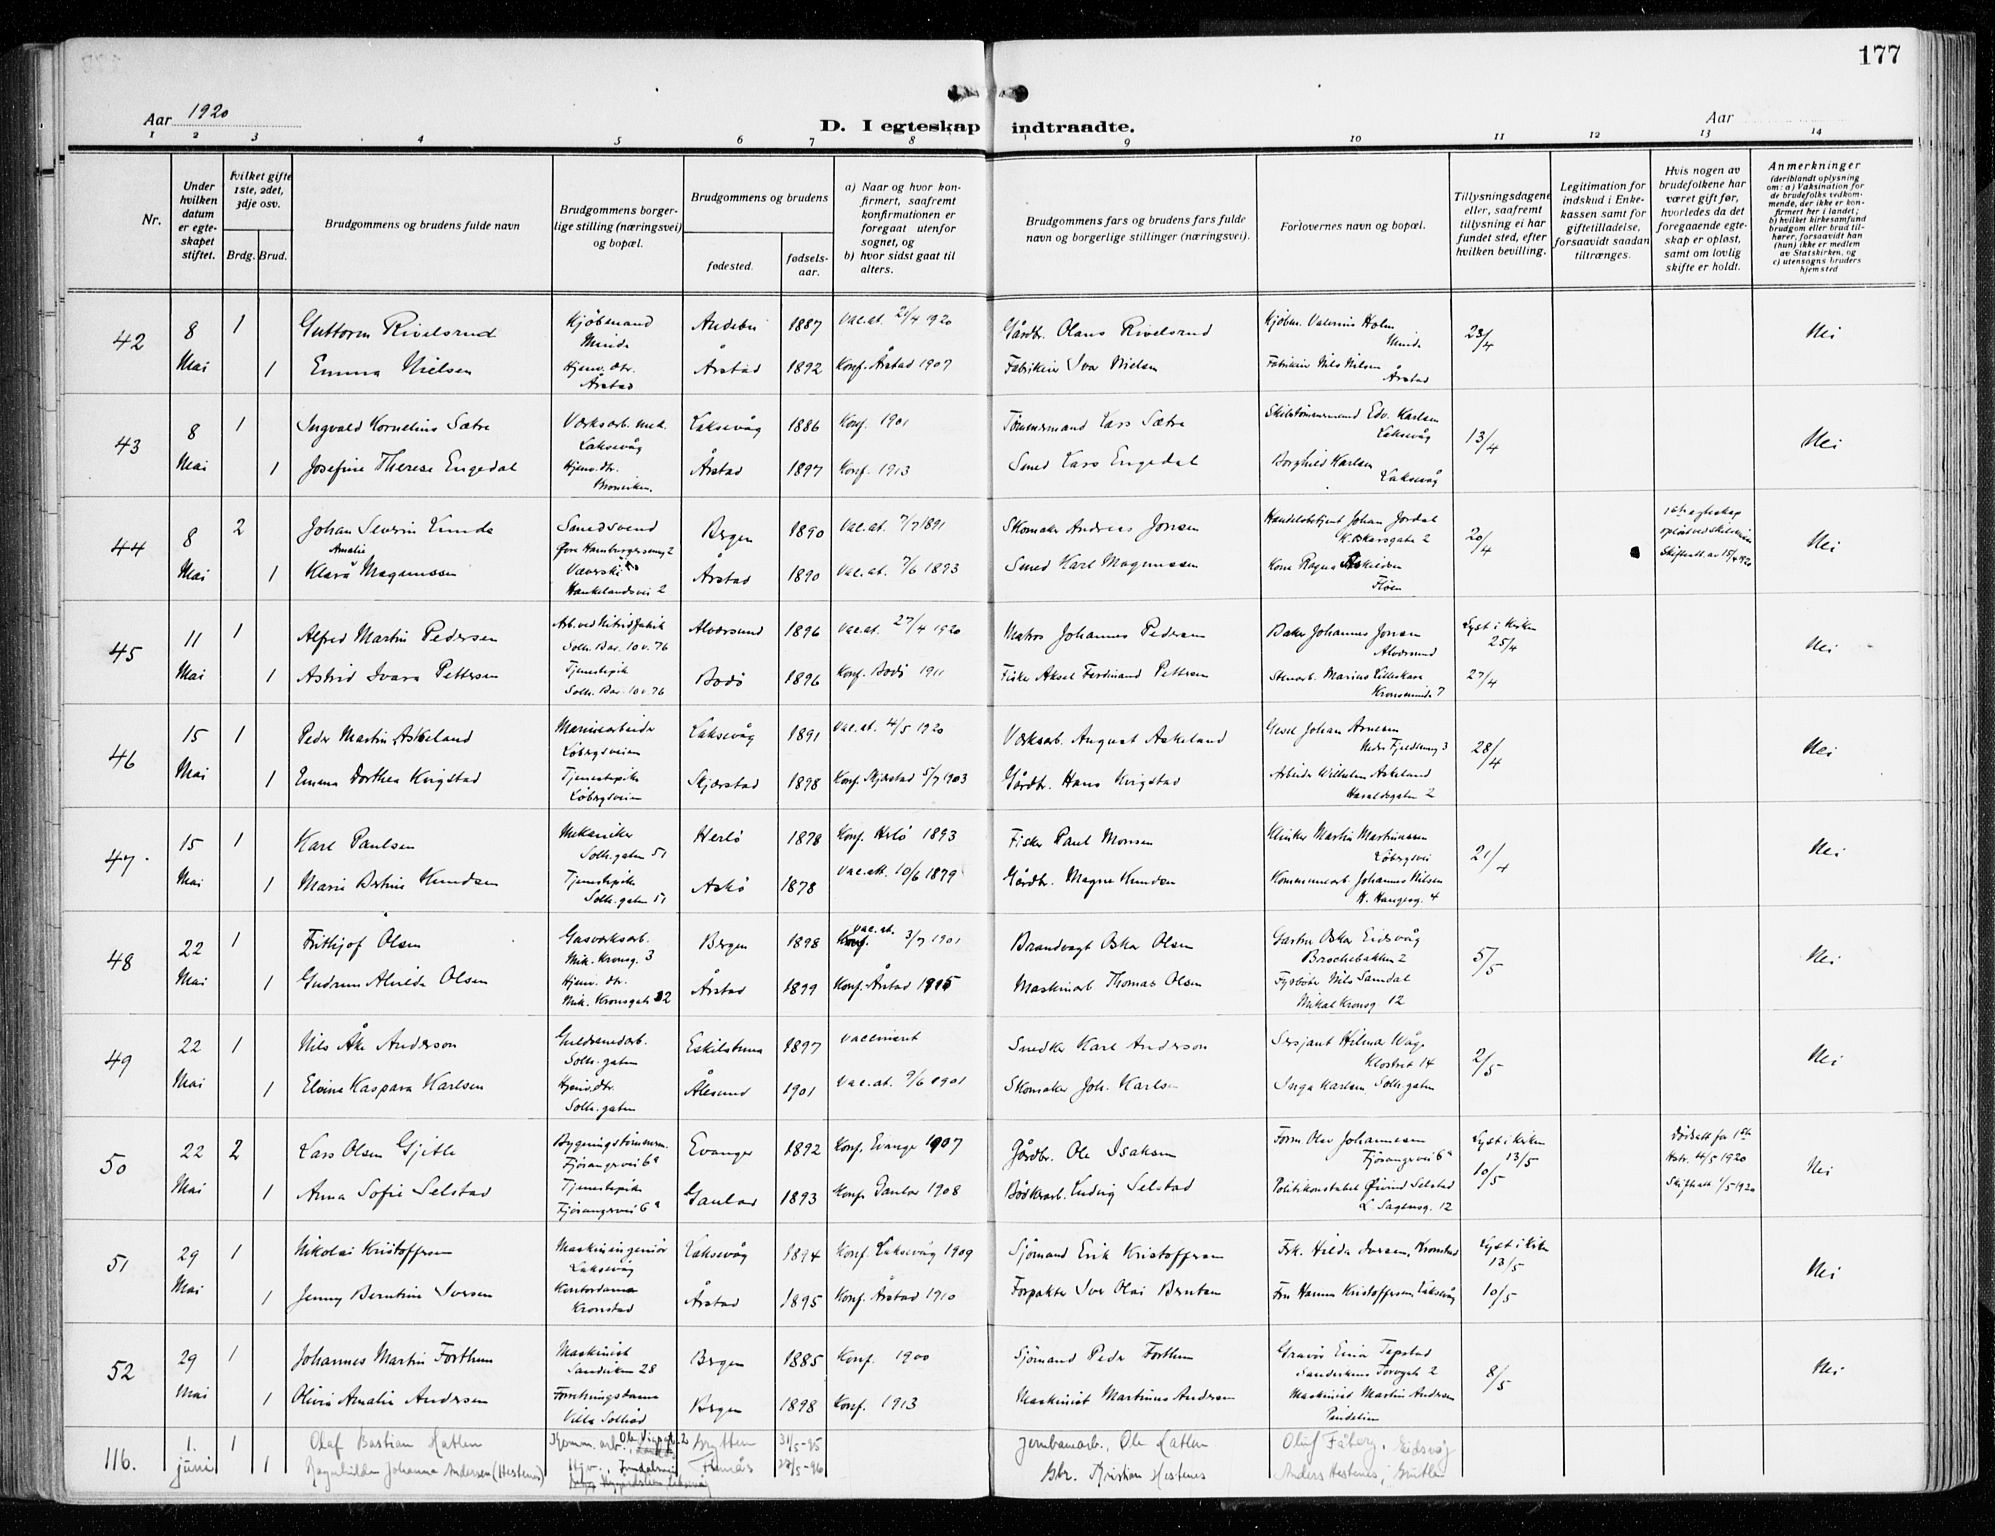 177
Aar 1920
D. I egteskap indtraadte.
Aar
1 2 3 4 5 6 7 8 9 10 11 12 13 14
Nr.
Under hvilken datum er egteskapet stiftet.
Hvilket gifte 1ste, 2det, 3dje osv.
Brdg. Brud.
Brudgommens og brudens fulde navn
Brudgommens borgerlige stilling (næringsvei) og bopæl.
Brudgommens og brudens
fødested.
fødselsaar.
a) Naar og hvor konfirmert, saafremt konfirmationen er foregaat utenfor sognet, og
b) hvor sidst gaat til alters.
Brudgommens fars og brudens fars fulde navn og borgerlige stillinger (næringsvei).
Forlovernes navn og bopæl.
Tillysningsdagene eller, saafremt tillysning ei har fundet sted, efter hvilken bevilling.
Legitimation for indskud i Enkekassen samt for giftetilladelse, forsaavidt saadan tiltrænges.
Hvis nogen av brudefolkene har været gift før, hvorledes da det foregaaende egteskap er opløst, samt om lovlig skifte er holdt.
Anmerkninger
(deriblandt oplysning om: a) Vaksination for de brudefolks vedkommende, der ikke er konfirmert her i landet; b) hvilket kirkesamfund brudgom eller brud tilhører, forsaavidt han (hun) ikke er medlem av Statskirken, og c) utensogns bruders hjemsted
42 8 1 Guttorm Rivelsrud Kjøbmand Andebu 1887 Vac.at. 21/4 1920 Gårdbr. Olaus Rivelsrud Kjøbm. Valerius Holm 23/4 Nei
Minde Minde
Mai 1 Emma Nielsen Hjemv. dtr. Årstad 1892 Konf. Årstad 1907 Fabrikeier Ivar Nielsen Fabrikeier Nils Nilsen
Årstad Årstad
43 8 1 Ingvald Kornelius Sætre Værksarb. mek. Laksevåg 1886 Konf. 1901 Tømmermand Lars Sætre Skibstømmermand Edv. Karlsen 13/4 Nei
Laksevåg Laksevåg
Mai 1 Josefine Therese Engedal Hjemv. dtr. Årstad 1897 Konf. 1913 Smed Lars Engedal Borghild Karlsen
Laksevåg
44 8 2 Johan Severin Lunde Smedsvend Bergen 1890 Vac.at. 7/7 1891 Skomaker Andreas Jonsen Handelsbetjent Johan Jordal 20/4 1ste egteskap Nei
Amalie Øvre Hamburgersmug 2 2
Mai 1 Klara Magnussen Årstad 1890 Vac.at. 7/6 1893 Smed Karl Magnussen Kone Ragna Askilden Skifteatt. av 15/4 1920
Haukelandsvei 2 Fløen
45 11 1 Alfred Martin Pedersen Alversund 1896 Vac.at. 27/4 1920 Matros Johannes Pedersen Baker Johannes Jonsen Lyst i kirken Nei
Solh. Bar. 10 v. 76 Alversund 25/4
Mai 1 Astrid Ivara Pettersen Tjenestepike Bodø 1896 Konf. Bodø 1911 Fisker Aksel Ferdinand Pettersen Stenarb. Marius Lilleskare 27/4
Solh. Bar. 10 v. 76 7
46 15 1 Peder Martin Askeland Laksevåg 1891 Vac.at. 4/5 1920 Værksarb. August Askeland Johan Arnesen 28/4 Nei
Løbergsveien 3
Mai 1 Emma Dorthea Kvigstad Tjenestepike Skjærstad 1898 Konf. Skjærstad 5/7 1903 Gårdbr. Hans Kvigstad Arbeider Wilhelm Askeland
Løbergsveien Haraldsgaten 2
47. 15 1 Karl Paulsen Mekaniker Herlø 1878 Konf. Herlø 1893 Fisker Paul Monsen Martin Martinussen 21/4 Nei
Solh.gaten 51 Løbergsvei
Mai 1 Marie Bertine Knudsen Tjenestepike Askø 1878 Vac.att. 10/6 1879 Gårdbr. Magne Knudsen Kommunearb. Johannes Nilsen
Solh.gaten 51 H. Haugesg. 4
48 22 1 Frithjof Olsen Gasværksarb. Bergen 1898 Vac.at. 3/7 1901 Brandvagt Oskar Olsen Gartner Oskar Eidsvåg 5/5 Nei
Mik. Kronsg. 3 2
Mai 1 Gudrun Alvilda Olsen Hjemv. dtr. Årstad 1899 Konf. Årstad 1915 Maskinarb Thomas Olsen Fyrbøter Nils Samdal
Mik. Kronsgate 12 Mikal Kronsg 12
49 22 1 Nils Åke Anderson Guldsmedarb. Eskilstuna 1897 vaccinert Snedker Karl Anderson Sersjant Hilmar Våge 2/5 Nei
Solh. gaten Klostret 14
Mai 1 Elvina Kaspara Karlsen Hjemv. dtr. Ålesund 1901 Vac.at. 9/6 1901 Skomaker Joh. Karlsen Inga Karlsen Solh. gaten
Solh. gaten
50 22 2 Lars Olsen Gjitle Bygningstømmerm. Evanger 1892 Konf. Evanger 1907 Gårdbr. Ole Isaksen Form. Olav Johannesen Lyst i kirken Dødsatt. for 1ste Nei
Fjøsangervei 6a Fjøsangervei 6a 13/5 Hstr. 4/5 1920
Mai 1 Anna Sofie Selstad Tjenestepike Gaular 1893 Konf. Gaular 1908 Bødkerarb. Ludvig Selstad Politikonstabel Øivind Selstad 10/5 1/5 1920
Fjøsangervei 6a L. Sagensg. 12
51 29 1 Nikolai Kristoffersen Maskiningeniør Laksevåg 1894 Konf. Laksevåg 1909 Sjømand Erik Kristoffersen Frk. Hilda Iversen, Kronstad Lyst i kirken Nei
Laksevåg 13/5
Mai 1 Jenny Berntine Iversen Kontordame Årstad 1895 Konf. Årstad 1910 Forpakter Iver Olai Berntsen Fru Hanna Kristoffersen, Laksevåg 10/5
Kronstad
52 29 1 Johannes Martin Forthun Maskinist Bergen 1885 Konf. 1900 Sjømand Peder Forthun Gravør Einar Tepstad 8/5 Nei
Sandviken 28 2
Mai 1 Olivia Amalie Andersen Forretningsdame Bergen 1898 Konf. 1913 Maskinist Martinus Andersen Maskinist Martin Andersen
Villa Solheid
116. 1. 1 Olaf Bastian Hatlen Komm. arb. Grytten 31/5-95 Jernbanearb. Ole Hatlen Oluf Fåberg, Eidsvåg
juni 1 Ragnhilden Johanna Andersen (Hestenes) Hjv. 27/5-96 Gbr. Kristian Hestenes Anders Hestenes,